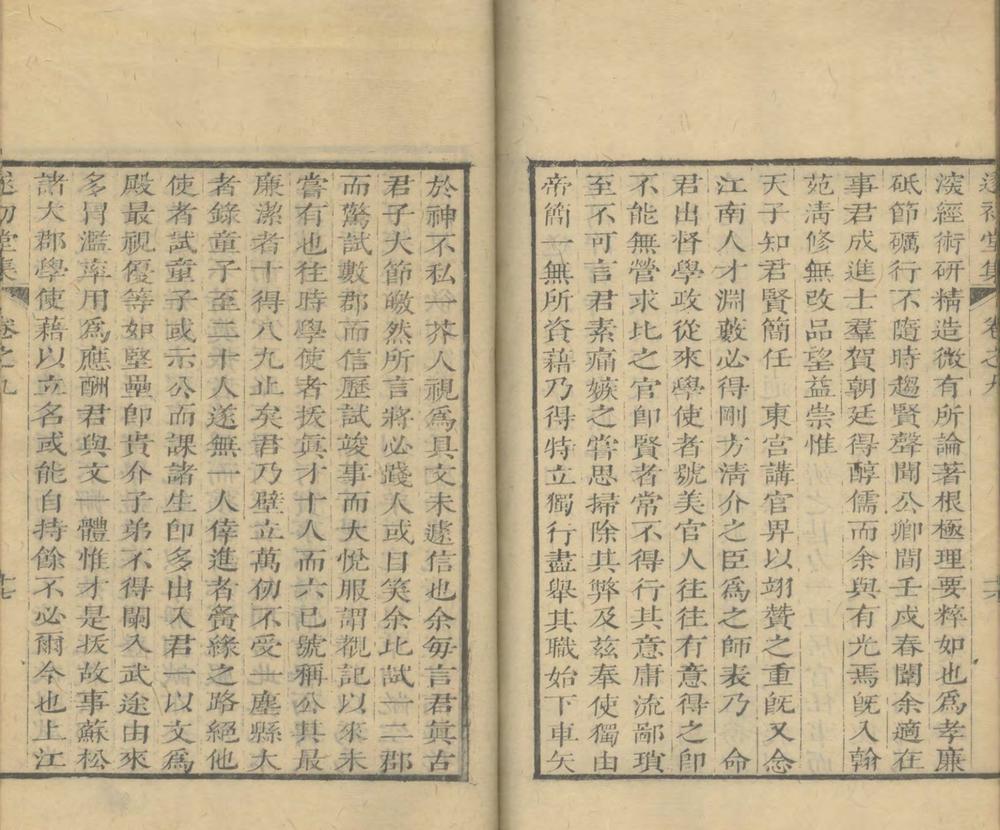 遂初堂集 卷之九
淡經術研精造微有所論著根極理要粹如也爲孝廉
砥節礪行不隨時趨賢聲聞公卿間壬戍春闈余適在
事君成進士羣賀朝廷得醇儒而余與有光焉旣入翰
苑淸修無改品望益崇惟
天子知君賢簡任 東宮講官畀以翊贊之重旣又念
江南人才淵藪必得剛方淸介之臣爲之師表乃 命
君出督學政從來學使者號美官人往往有意得之卽
不能無營求比之官卽賢者常不得行其意庸流鄙瑣
至不可言君素痛嫉之嘗思掃除其弊及茲奉使獨由
帝簡一無所資藉乃得特立獨行盡舉其職始下車矢
於神不私一芥人視爲具文未遽信也余每言君眞古
君子大節皦然所言將必踐人或目笑余比試一二郡
而驚試數郡而信歷試竣事而大悅服謂觀記以來未
嘗有也往時學使者拔眞才十人而六已號稱公其最
廉潔者十得八九止矣君乃壁立萬仞不受一塵縣大
者錄童子至二十人遂無一人倖進者夤緣之路絕他
使者試童子或示公而課諸生卽多出入君一以文爲
殿最視優等如堅壘卽貴介子弟不得闌入武途由來
多冒濫率用爲應酬君與文一體惟才是拔故事蘇松
諸大郡學使藉以立名或能自持餘不必爾今也上江
遂初堂集 卷之九 十七